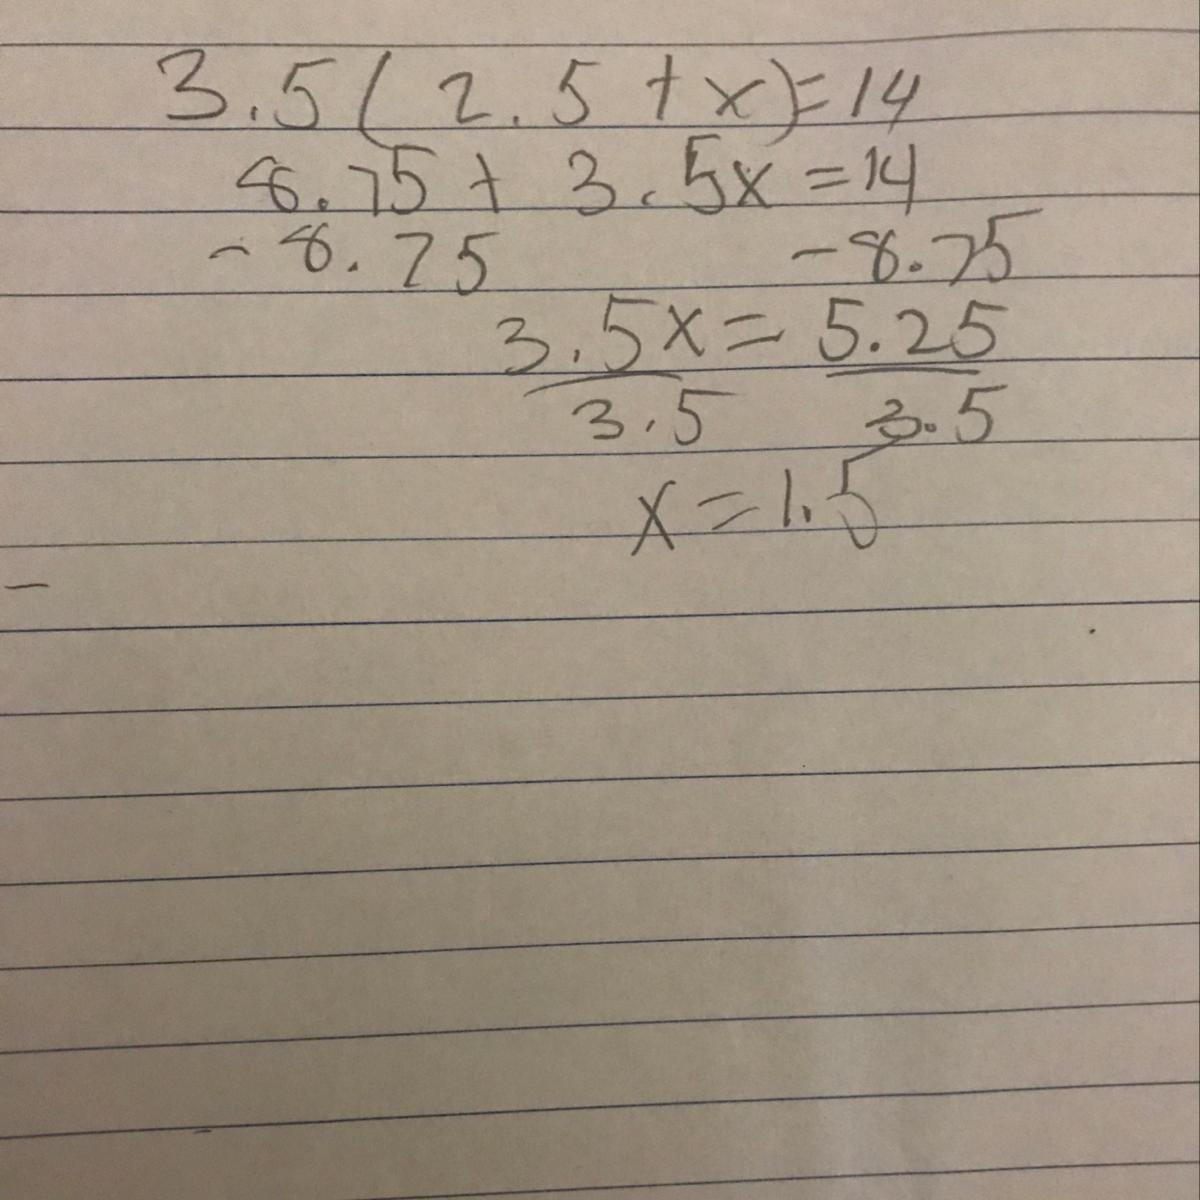 3.5(2.5+x)=14
8.75+3.5x=14
-8.75 -8.75
3.5x=5.25
3.5 3.5
x=1.5